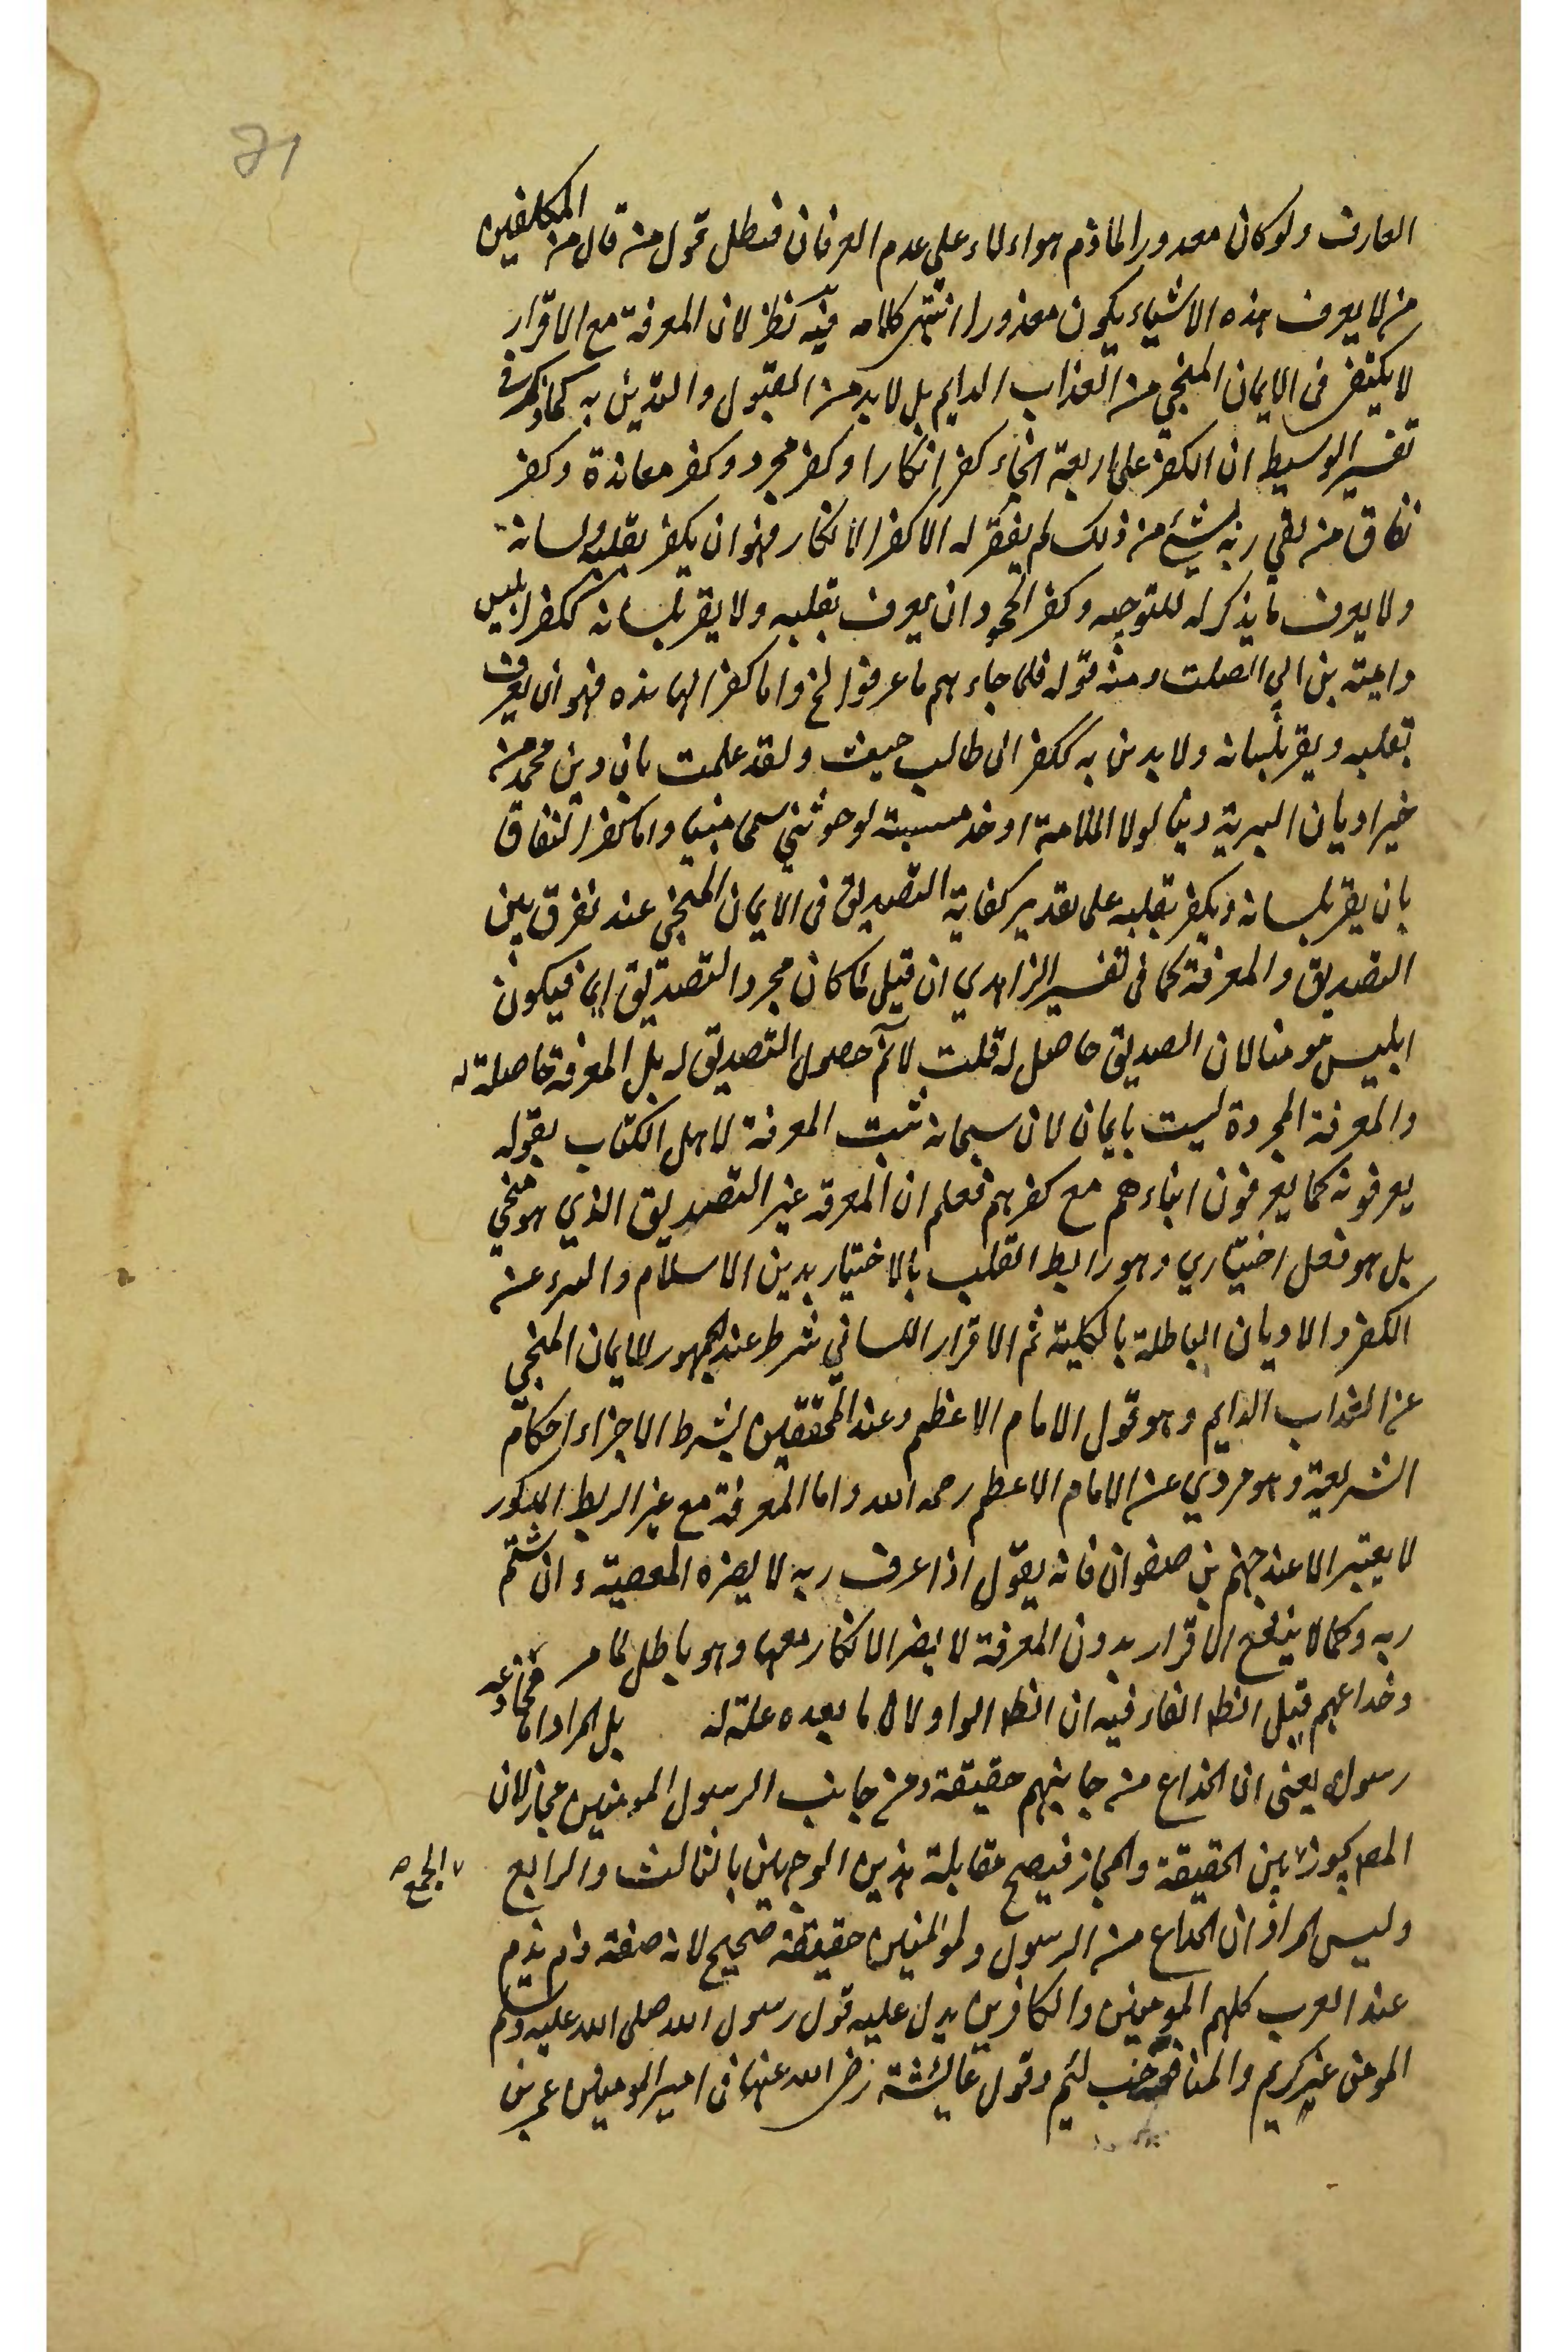 71
العارف ولو كان معدورا لما ذم هواء لاء على عدم العرفان فبطل قول من قال من المكلفين
من لا يعرف هذه الاشياء يكون معذورا انتهى كلامه فيه نظر لان المعرفة مع الاقرار
لا يكتفى فى الايمان المنجي من العذاب الدايم بل لا بد من القبول والتدين به كما ذكر في
تفسير الوسيط ان الكفر على اربعة انحاء كفر انكارا وكفر مجرد وكفر معاندة وكفر
نفاق من لقي ربه بشئ من ذلك لم يغفر له الا كفر الانكار وهو ان يكفر بقلبه ولسانه
ولا يعرف ما يذكر له للتوحيد وكفر الجحود ان يعرف بقلبه ولا يقر بلسانه ككفر ابليس
وامية بن ابي الصلت ومنه قوله فلما جاءهم ما عرفوا الخ واما كفر المعانده فهو ان يعرف
بقلبه ويقر بلسانه ولا يدين به ككفر ابى طالب حيث ولقد علمت بان دين محمد من
خير اديان البرية دينا لولا الملامة او حذ مسبة لوجدتني سمحا مبينا واما كفر النفاق
بان يقر بلسانه ويكفر بقلبه على تقدير كفاية التصديق فى الايمان المنجي عند نفرق بين
التصديق والمعرفة كما فى تفسير الزاهدي ان قيل لما كان مجرد التصديق ايمانا فيكون
ابليس مومنا لان التصديق حاصل له قلت لا نم حصول التصديق له بل المعرفة حاصلة له
والمعرفة المجردة ليست بايمان لان سبحانه ثبت المعرفة لاهل الكتاب بقوله
يعرفونه كما يعرفون ابناءهم مع كفرهم فعلم ان المعرفة غير التصديق الذي هو منجي
بل هو فعل اختياري وهو رابط القلب بالاختيار بدين الاسلام والتبرء عن
الكفر والاديان الباطلة بالكلية ثم الاقرار اللساني شرط عند الجمهور للايمان المنجي
عن العذاب الدايم وهو قول الامام الاعظم وعند المحققين بشرط الاجزاء احكام
الشريعة وهو مروي عن الامام الاعظم رحمه الله واما المعرفة مع غير الربط المذكور
لا يعتبر الا عند جهم بن صفوان فانه يقول اذا عرف ربه لا يضره المعصية وان شتم
ربه وكما لا ينفع الاقرار بدون المعرفة لا يضر الانكار معها وهو باطل لما مر
وخداعهم قيل الظ الفاء فيه ان الظ الواو لان ما بعده علة له بل المراد اما مخادعه
رسوله يعنى ان الخداع من جانبهم حقيقة ومن جانب الرسول المومنين مجاز لان
المص يجوز ٧ بين الحقيقة والمجاز فيصح مقابلة هذين الوجهين بالثالث والرابع
٧ الجمع ص
وليس المراد ان الخداع من الرسول والمومنين حقيقة صحيح لانه صفة ذم يذم
عند العرب كلهم المومنين والكافرين يدل عليه قول رسول الله صلى الله عليه وسلم
المومن غر كريم والمنافق خب لئيم وقول عايشة رضى الله عنها فى امير المومنين عمر بن